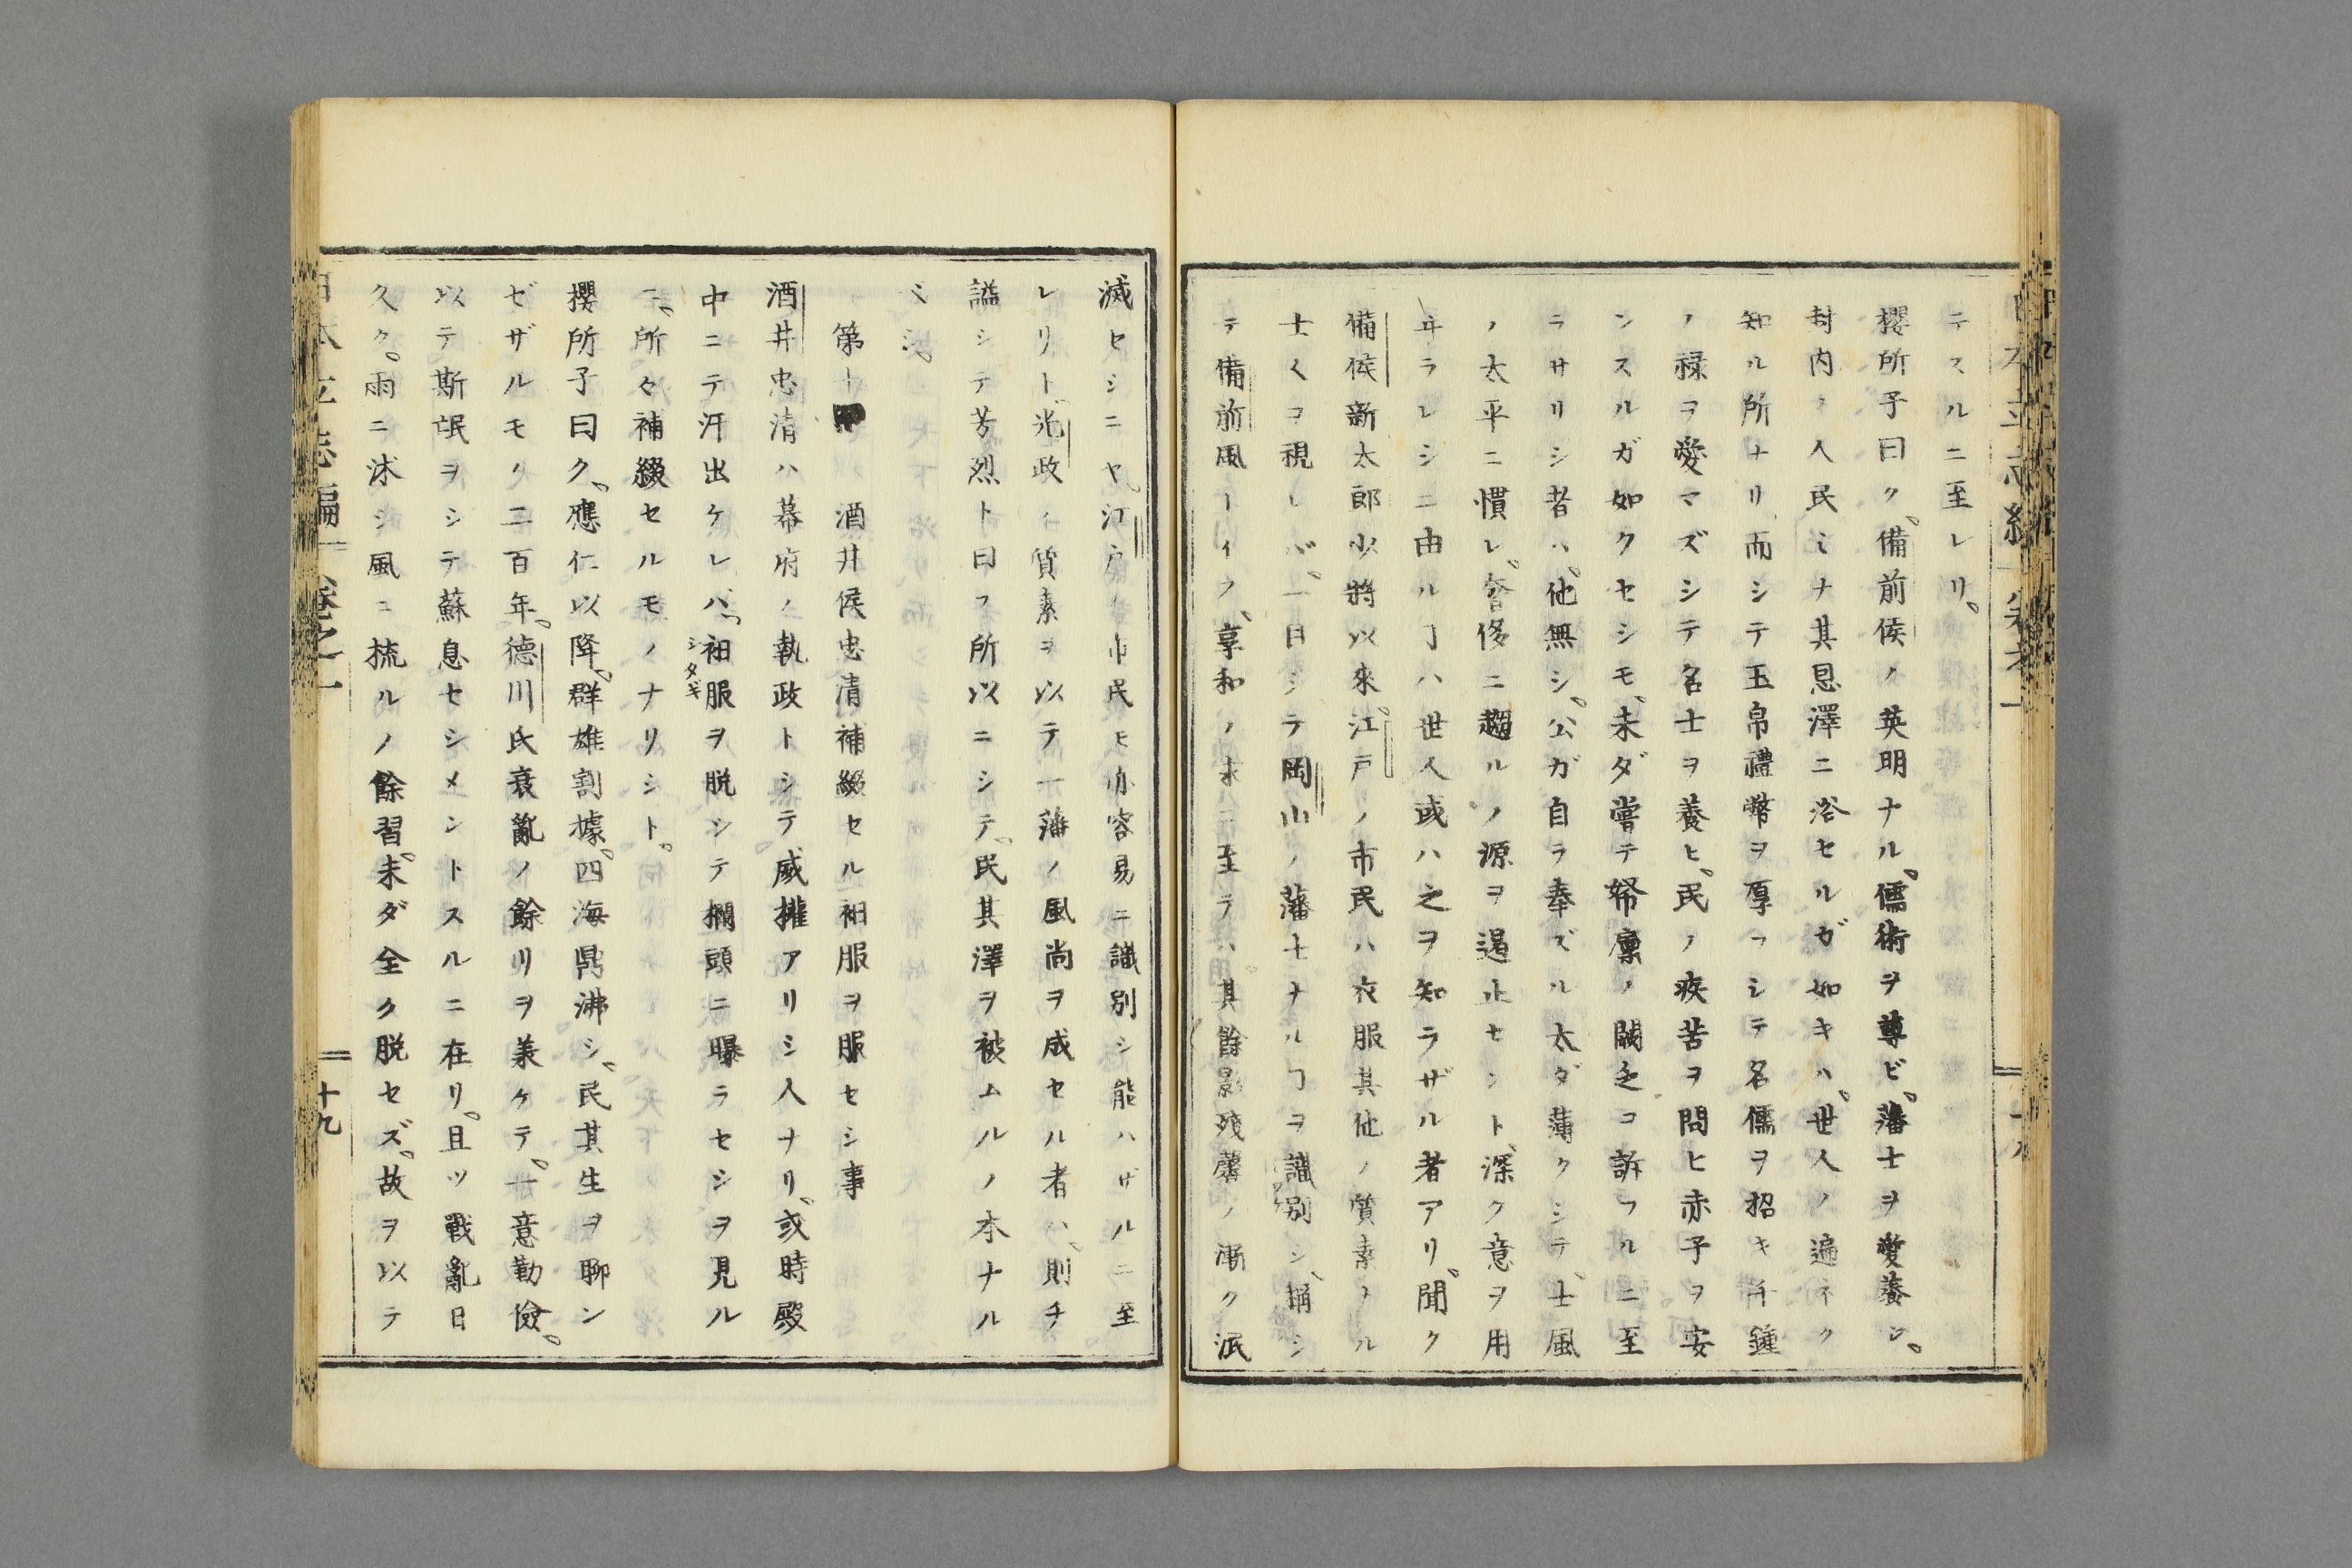 テスルニ至レリ。
櫻所子曰ク、備前侯ノ英明ナル、儒術ヲ尊ビ、藩士ヲ愛養シ、
封内ノ人民ミナ其恩澤ニ浴セルガ如キハ、世人ノ遍ネク
知ル所ナリ而シテ玉帛禮幣ヲ厚フシテ名儒ヲ招キ千鍾
ノ禄ヲ愛マズシテ名士ヲ養ヒ、民ノ疾苦ヲ問ヒ赤子ヲ安
ンスルガ如クセシモ、未ダ嘗テ帑廩ノ闕乏ヲ訴フルニ至
ラサリシ者ハ、他無シ、公ガ自ラ奉ズル太ダ薄クシテ、士風
ノ太平ニ慣レ、奢侈ニ趨ルノ源ヲ遏止セント、深ク意ヲ用
ヰラレシニ由ルヿハ世人或ハ之ヲ知ラザル者アリ、聞ク
備侯新太郎少將以來、江戸ノ市民ハ衣服其他ノ質素ナル
士人ヲ視レバ、一目シテ岡山ノ藩士ナルヿヲ識別シ、稱シ
テ備前風トイフ、享和ノ末ニ至テハ其餘影殘馨ノ漸ク泯
滅セシニヤ、江戸ノ市民モ亦容易ニ識別シ能ハザルニ至
レリト、光政ノ質素ヲ以テ一藩ノ風尚ヲ成セル者ハ、則チ
謚シテ芳烈ト曰フ所以ニシテ、民其澤ヲ被ムルノ本ナル
ベシ。
第十 酒井侯忠清補綴セル衵服ヲ服セシ事
酒井忠清ハ幕府ノ執政トシテ、威權アリシ人ナリ、或時殿
中ニテ汗出ケレバ、衵服ヲ脱シテ欄頭ニ曝ラセシヲ見ル
シタギ
ニ、所々補綴セルモノナリシト。
櫻所子曰ク、應仁以降、群雄割據、四海鼎沸シ、民其生ヲ聊ン
ゼザルモノ二百年。德川氏衰亂ノ餘リヲ羕ケテ、一意勤儉。
以テ斯氓ヲシテ蘇息セシメントスルニ在リ。且ツ戰亂日
久ク、雨ニ沐シ風ニ梳ルノ餘習、未ダ全ク脱セズ、故ヲ以テ
十九